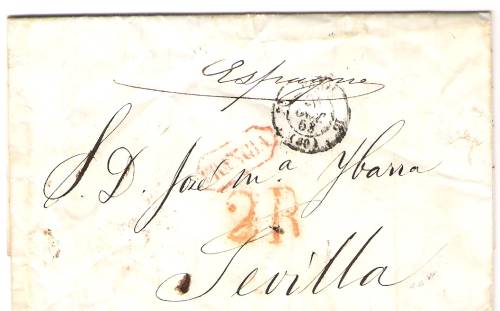 Espagne
(60)
S. D. José M.ª Ybarra
2R
Sevilla